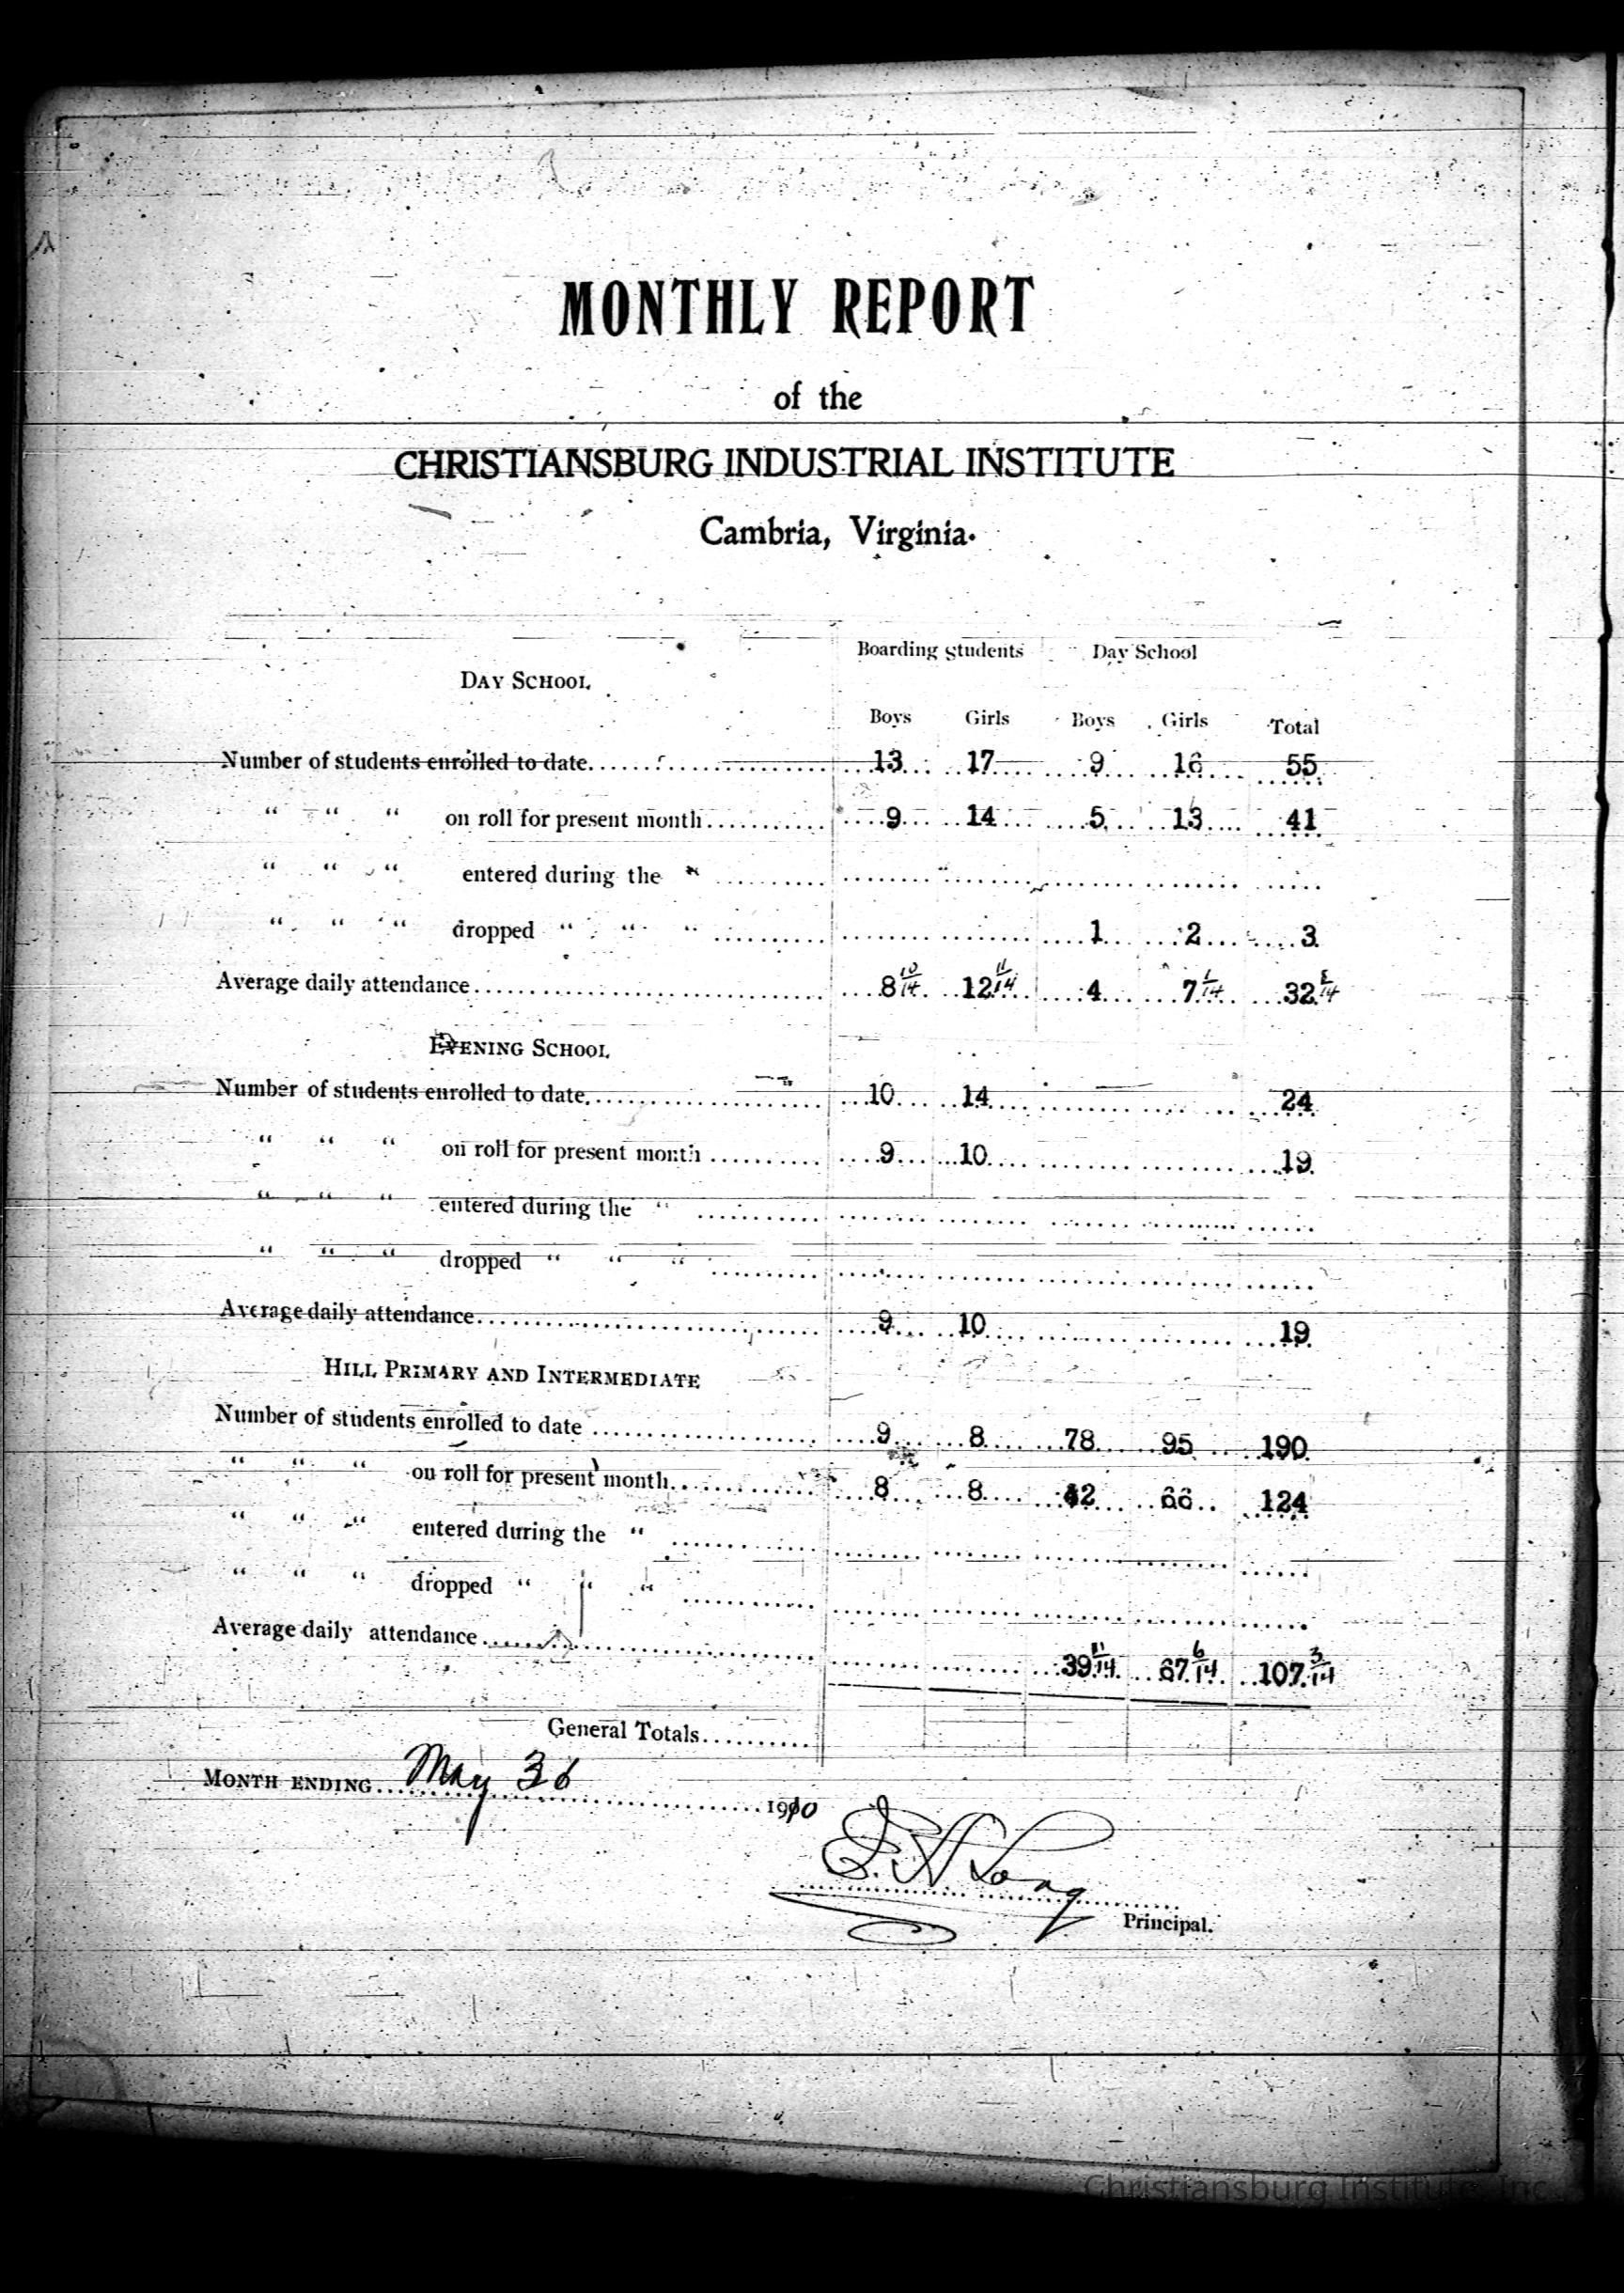 MONTHLY REPORT
of the
CHRISTIANSBURG INDUSTRIAL INSTITUTE
Cambria, Virginia.
Boarding students Day School
DAY SCHOOL
Boys Girls Boys Girls Total
Number of students enrolled to date 13 17 9 16 55
“ “ “ on roll for present month 9 14 5 13 41
“ “ “ entered during the “
“ “ “ dropped “ “ “ 1 2 3
Average daily attendance 8 10/14 12 11/14 4 7 1/14 32 8/14
EVENING SCHOOL
Number of students enrolled to date 10 14 24
“ “ “ on roll for present month 9 10 19
“ “ “ entered during the “
“ “ “ dropped “ “ “
Average daily attendance 9 10 19
HILL PRIMARY AND INTERMEDIATE
Number of students enrolled to date 9 8 78 95 190
“ “ “ on roll for present month 8 8 42 66 124
“ “ “ entered during the “
“ “ “ dropped “ “ “
Average daily attendance 39 11/14 67 6/14 107 3/14
General Totals
MONTH ENDING May 1910
Long
Principal.
Christiansburg Institute, Inc